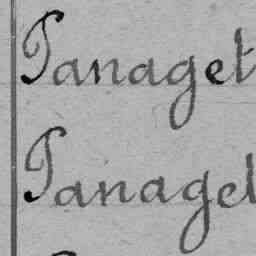 Panaget
Panaget